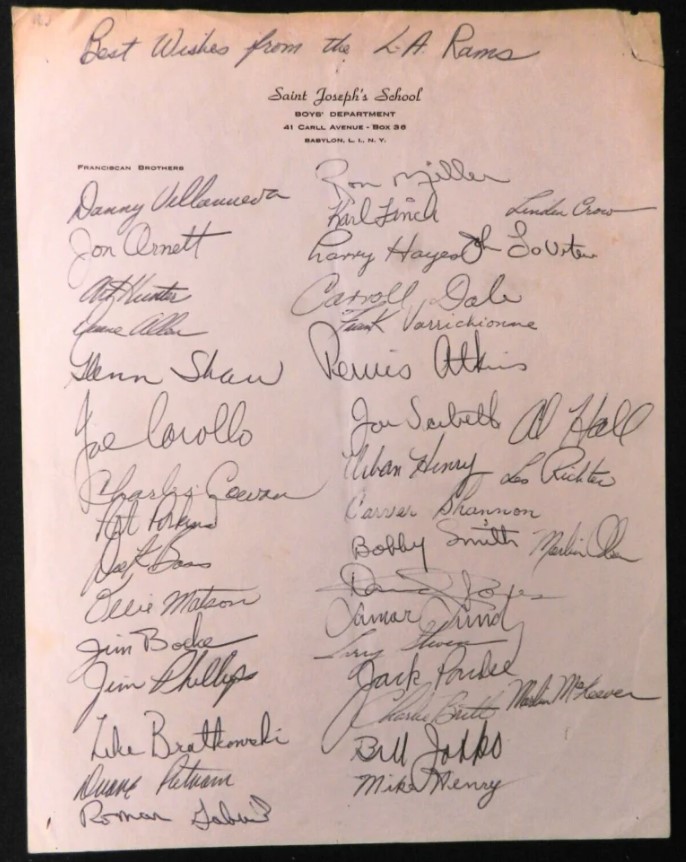 Best Wishes from the L.A. Rams
Saint Joseph's School
BOYS' DEPARTMENT
41 CARLL AVENUE - BOX 36
BABYLON, L. I., N. Y.
FRANCISCAN BROTHERS
Danny Villanueva
Jon Arnett
Art Hunter
Duane Allen
Glenn Shaw
Joe Carollo
Charlie Cowan
Art Perkins
Dick Bass
Ollie Matson
Jim Boeke
Jim Phillips
Zeke Bratkowski
Duane Putnam
Roman Gabriel
Ron Miller
Karl Finch
Linden Crow
Larry Hayes
Jo LoVetere
Carroll Dale
Frank Varrichionne
Pervis Atkins
Joe Scibelli
Al Hall
Urban Henry
Les Richter
Carver Shannon
Bobby Smith
Merlin Olsen
David Jones
Lamar Lundy
Larry Stevens
Jack Pardee
Charlie Britt
Marlin McKeever
Bill Jobko
Mike Henry